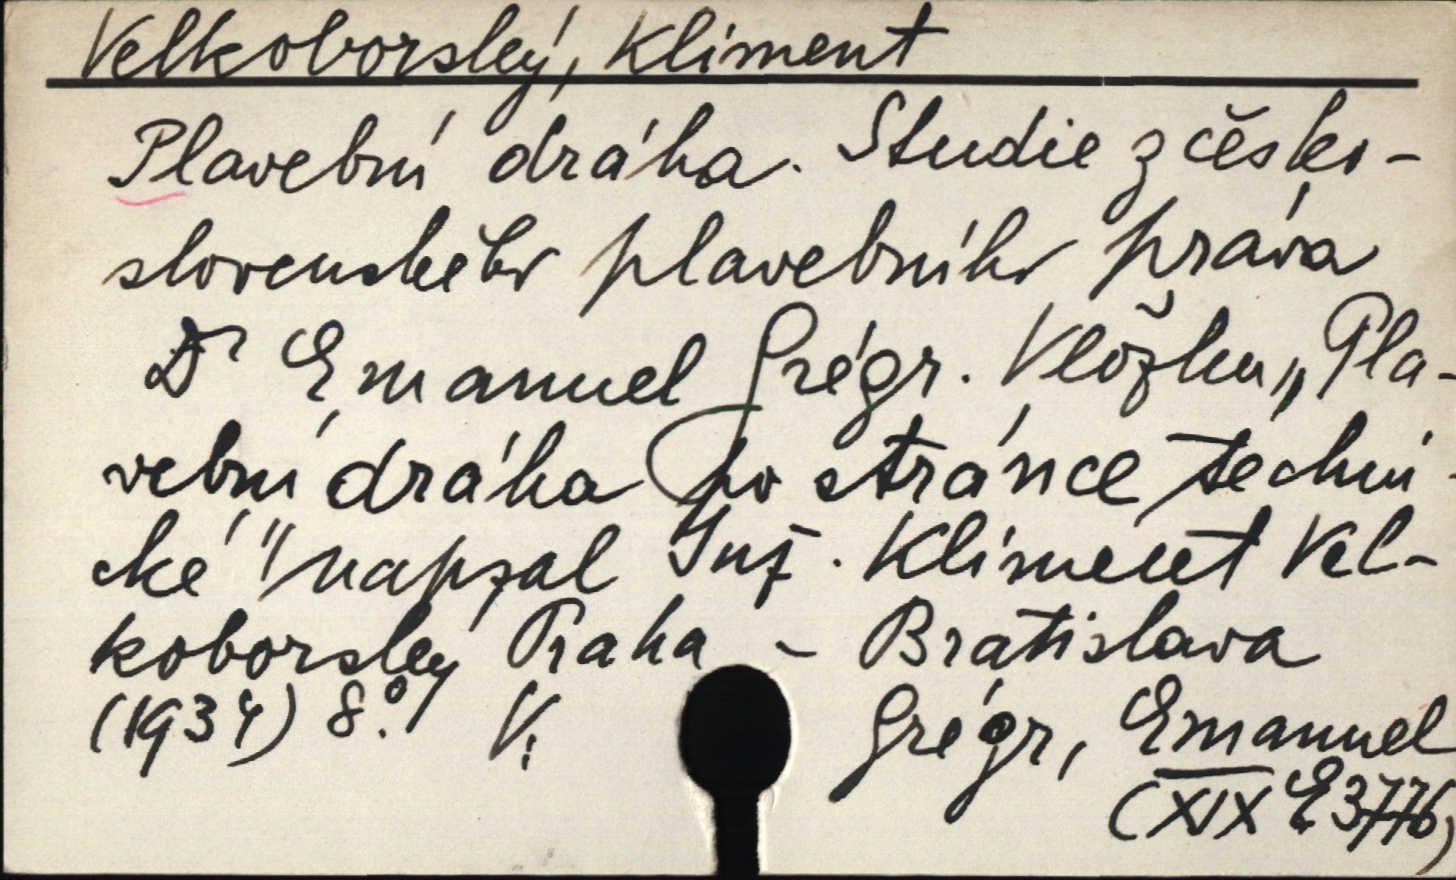 Velkoborský, Kliment
Plavební dráha. Studie z česko-
slovenského plavebního práva
Dr Emanuel Grégr. Vložku „Pla-
vební dráha po stránce techni-
cké" napsal Inž. Kliment Vel-
koborský Praha - Bratislava
(1934) 8°. V:
Grégr, Emanuel
(XIX E 3776)